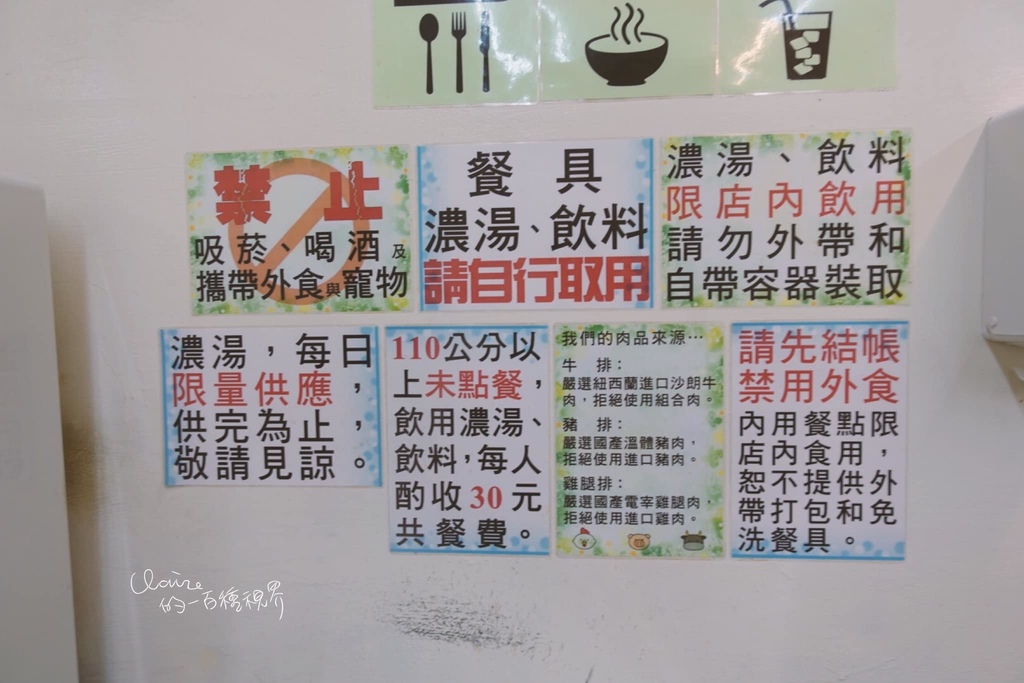 禁止
吸菸、喝酒及
攜帶外食與寵物
餐具
濃湯、飲料
請自行取用
濃湯、飲料
限店內飲用
請勿外帶和
自帶容器裝取
濃湯，每日
限量供應，
供完為止，
敬請見諒。
110公分以
上未點餐，
飲用濃湯、
飲料，每人
酌收30元
共餐費。
我們的肉品來源…
牛 排：
嚴選紐西蘭進口沙朗牛
肉，拒絕使用組合肉。
豬 排：
嚴選國產溫體豬肉，
拒絕使用進口豬肉。
雞腿排：
嚴選國產電宰雞腿肉，
拒絕使用進口雞肉。
請先結帳
禁用外食
內用餐點限
店內食用，
恕不提供外
帶打包和免
洗餐具。
Claire
的一百種視界